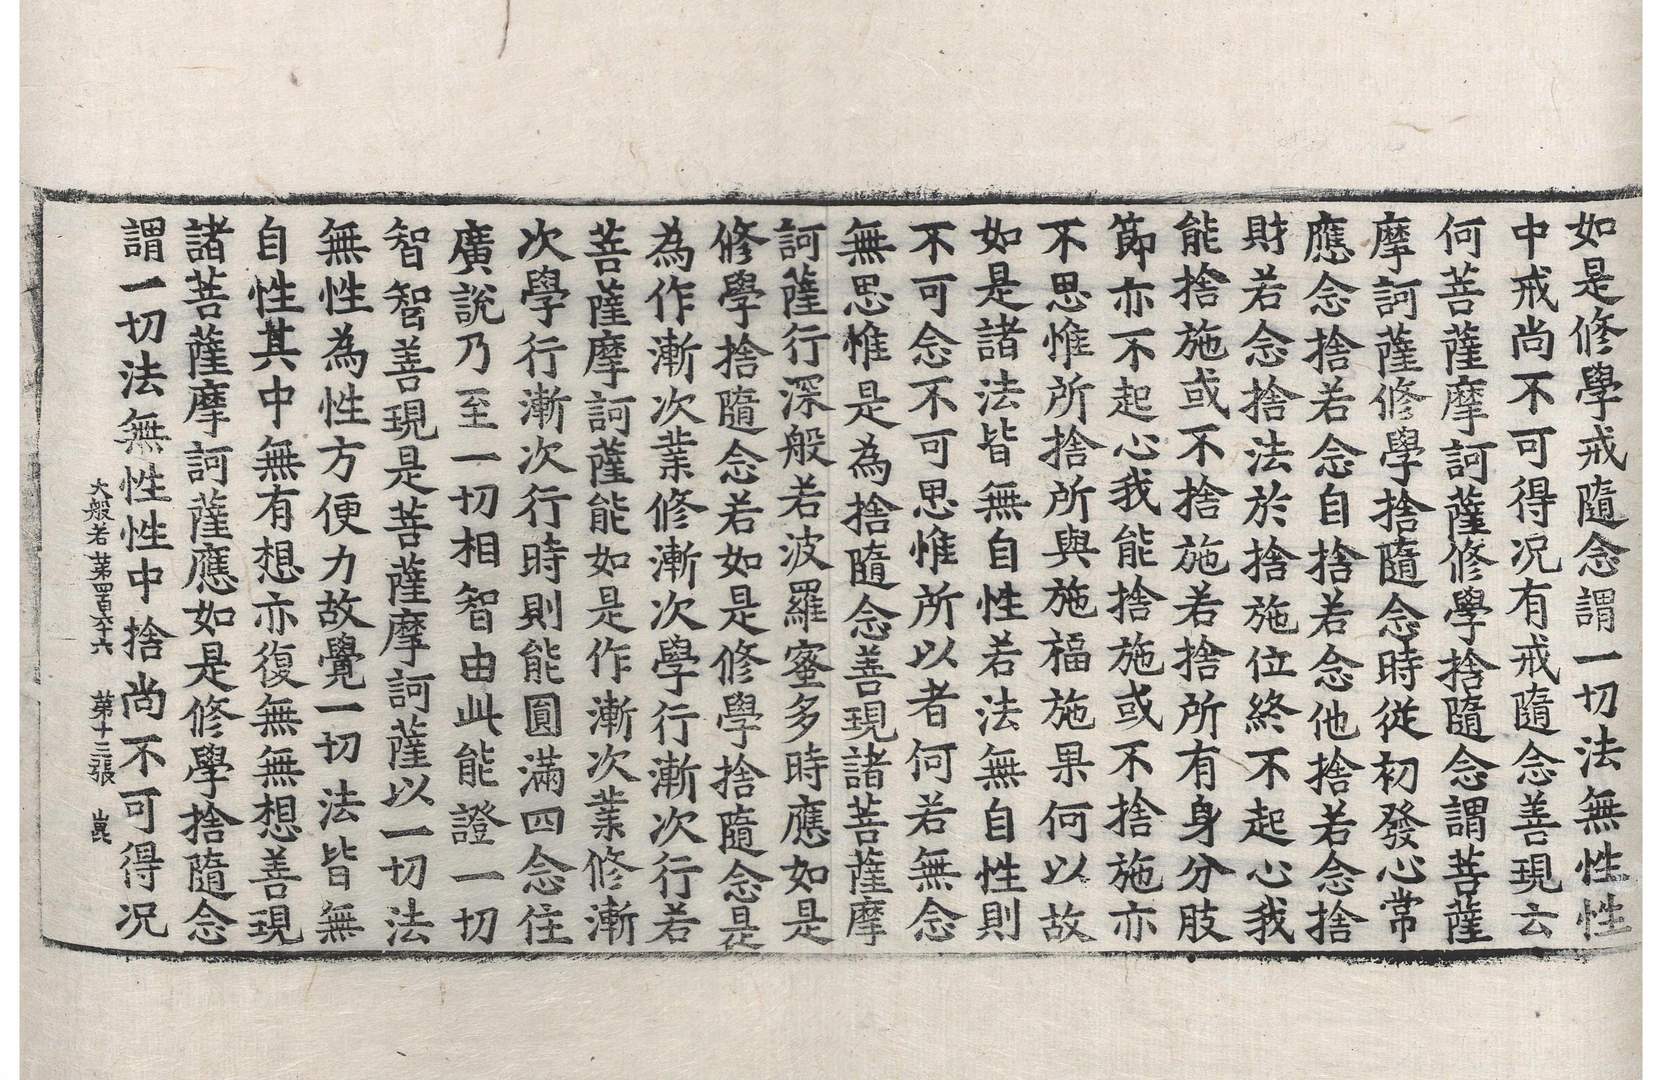 如是修學戒隨念謂一切法無性性
中戒尚不可得况有戒隨念善現云
何菩薩摩訶薩修學捨隨念謂菩薩
摩訶薩修學捨隨念時從初發心常
應念捨若念自捨若念他捨若念捨
財若念捨法於捨施位終不起心我
能捨施或不捨施若捨所有身分肢
節亦不起心我能捨施或不捨施亦
不思惟所捨所與施福施果何以故
如是諸法皆無自性若法無自性則
不可念不可思惟所以者何若無念
無思惟是為捨隨念善現諸菩薩摩
訶薩行深般若波羅蜜多時應如是
修學捨隨念若如是修學捨隨念是
為作漸次業修漸次學行漸次行若
菩薩摩訶薩能如是作漸次業修漸
次學行漸次行時則能圓滿四念住
廣說乃至一切相智由此能證一切
智智善現是菩薩摩訶薩以一切法
無性為性方便力故覺一切法皆無
自性其中無有想亦復無無想善現
諸菩薩摩訶薩應如是修學捨隨念
謂一切法無性性中捨尚不可得况
大般若第四百六十六 第十三張 崑